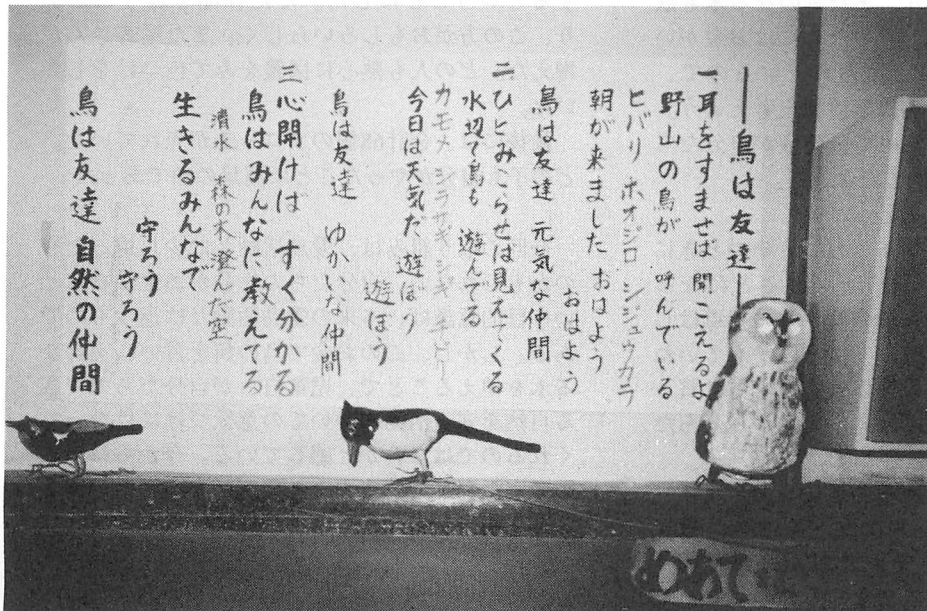 —鳥は友達—
一、耳をすませば聞こえるよ
野山の鳥が 呼んでいる
ヒバリ ホオジロ シジュウカラ
朝が来ました おはよう
おはよう
鳥は友達 元気な仲間
二ひとみこらせば見えてくる
水辺で鳥も 遊んでる
カモメ シラサギ シギ チドリ
今日は天気だ 遊ぼう
遊ぼう
鳥は友達 ゆかいな仲間
三心開けば すぐ分かる
鳥はみんなに教えてる
清水 森の木 澄んだ空
生きるみんなで
守ろう
守ろう
鳥は友達 自然の仲間
めあて